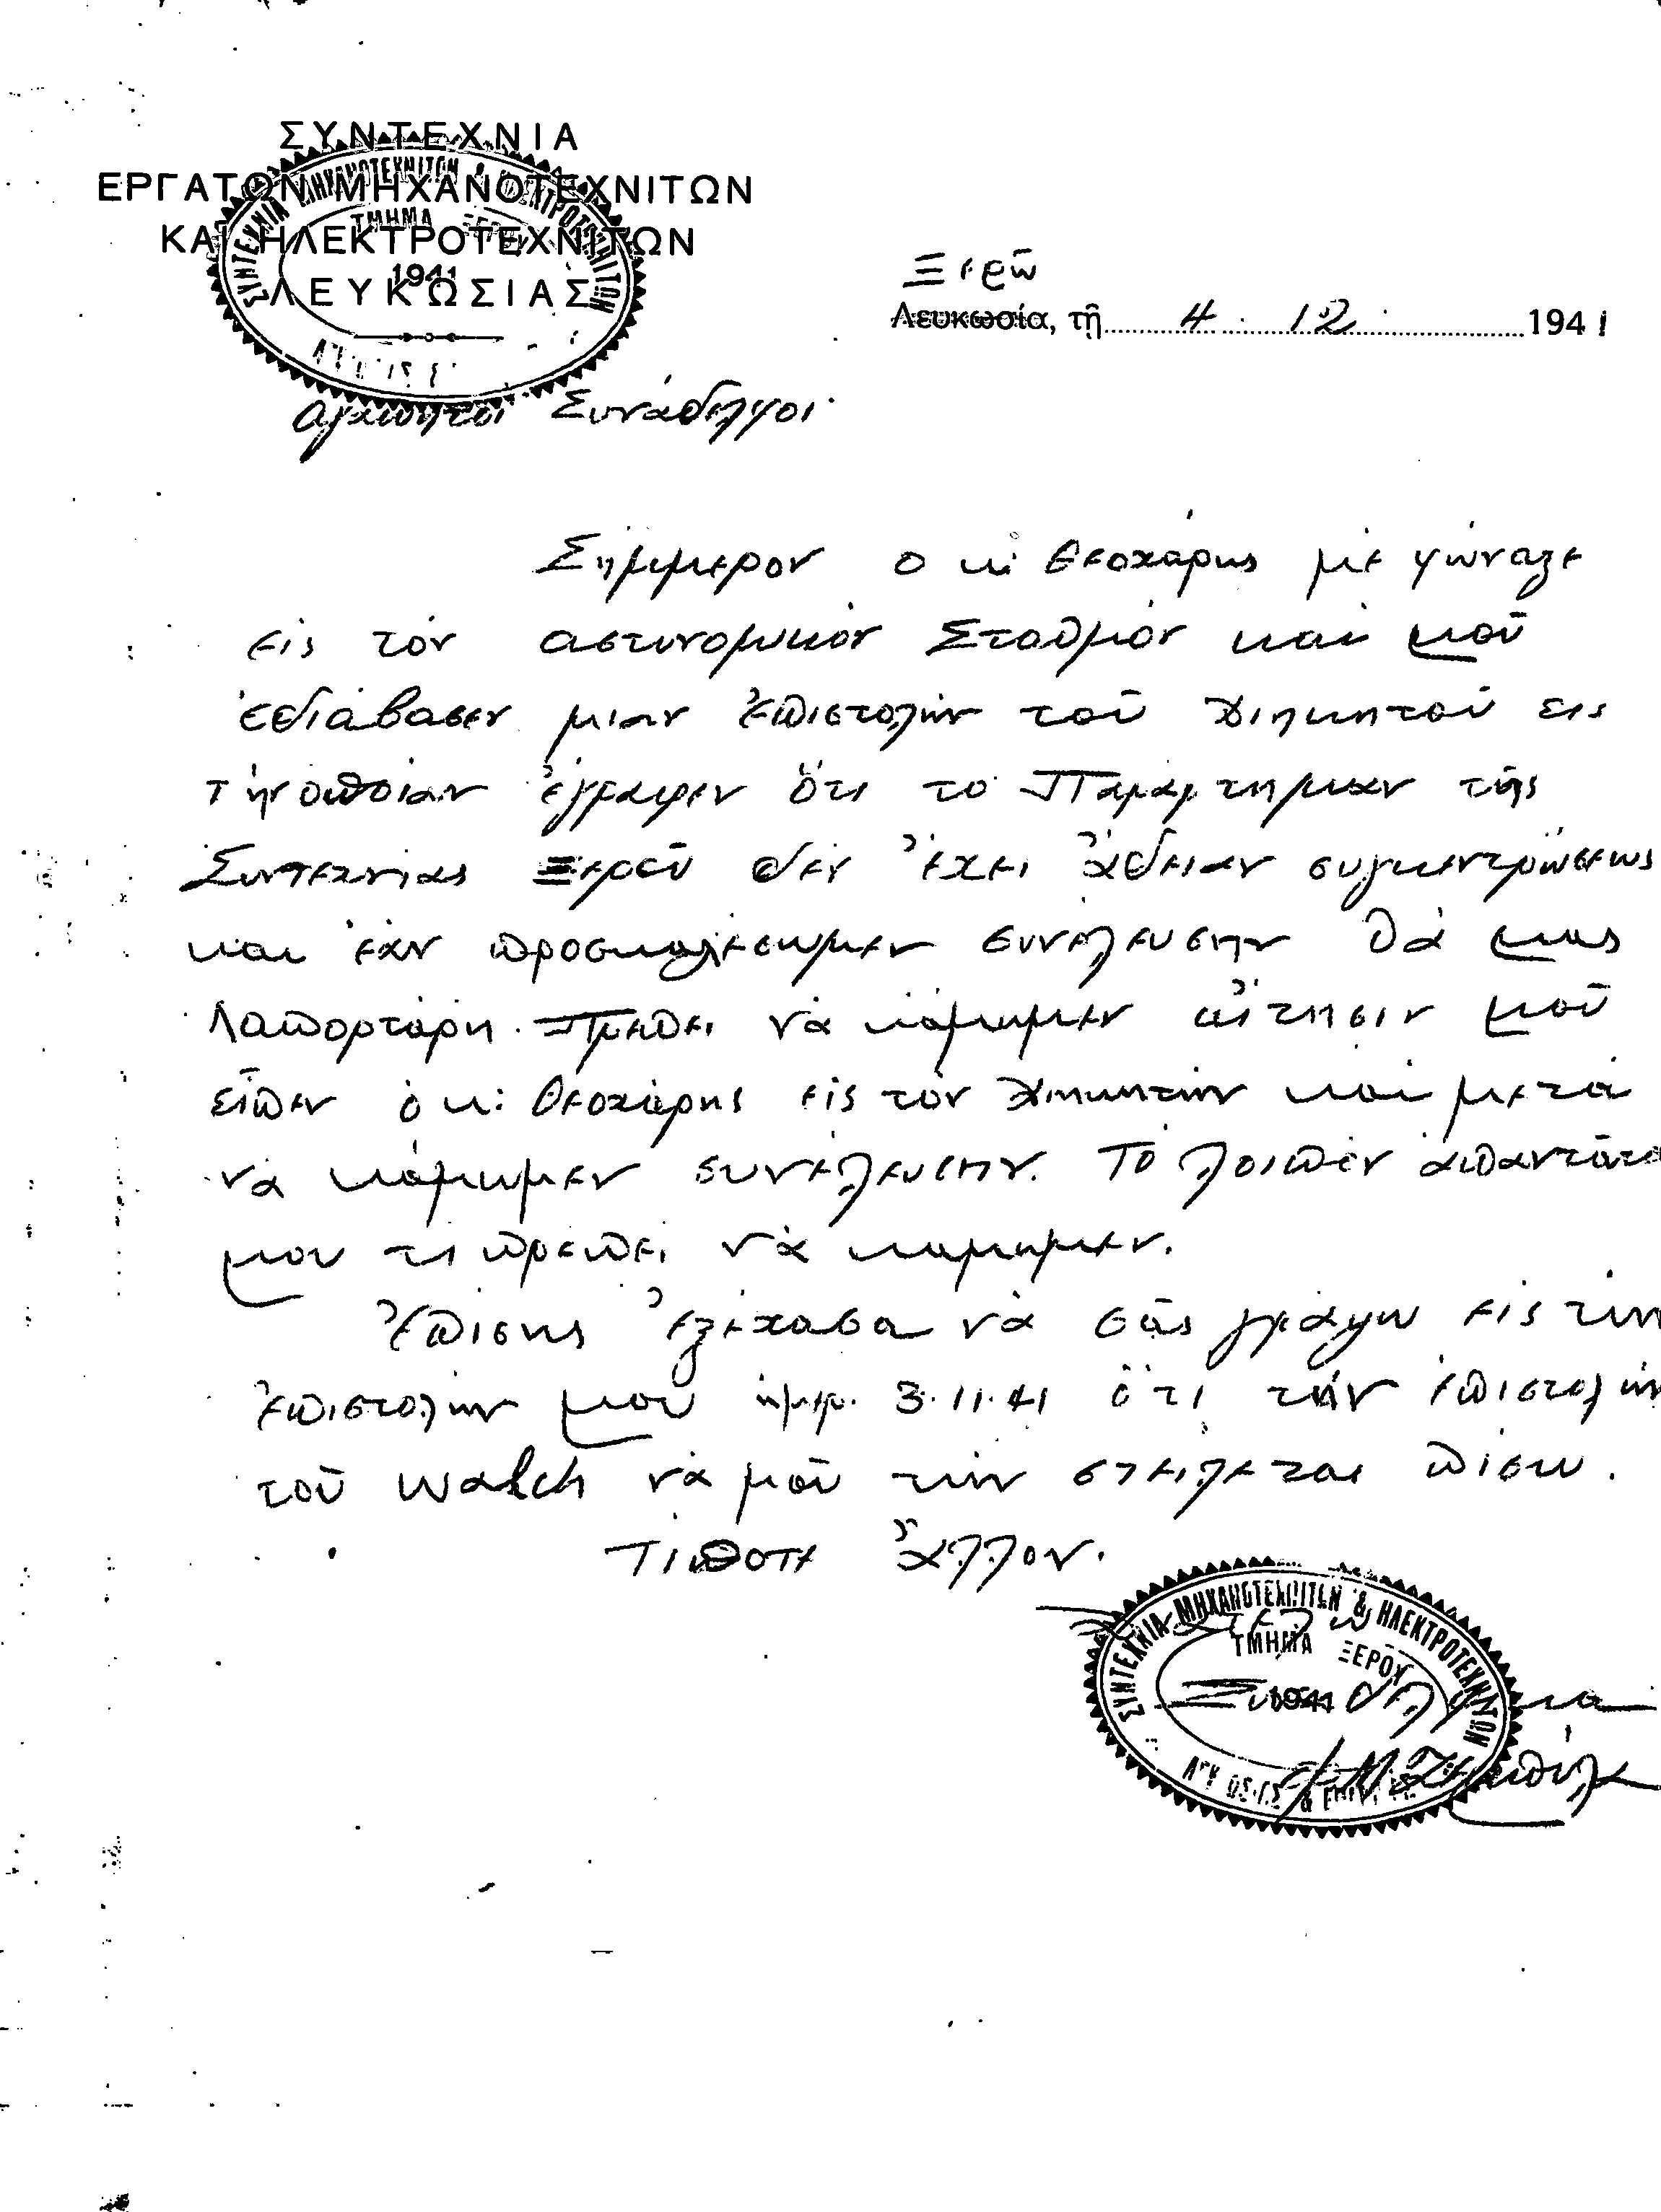 ΣΥΝΤΕΧΝΙΑ
ΕΡΓΑΤΩΝ ΜΗΧΑΝΟΤΕΧΝΙΤΩΝ
ΚΑΙ ΗΛΕΚΤΡΟΤΕΧΝΙΤΩΝ
ΛΕΥΚΩΣΙΑΣ
ΣΥΝΤΕΧΝΙΑ ΜΗΧΑΝΟΤΕΧΝΙΤΩΝ & ΗΛΕΚΤΡΟΤΕΧΝΙΤΩΝ
ΤΜΗΜΑ ΞΕΡΟΥ
1941
Ξερῶ
Λευκωσία, τῇ 4 · 12 1941
Αγαπητοί Συνάδελφοι
Σήμμερον ο κ: Θεοχάρης μέ φώναξε
εἰς τόν αστυνομικόν Σταθμόν και μοῦ
ἐδιάβασεν μιαν ἐπιστολήν τοῦ Διηκητοῦ εις
τήν οποίαν ἔγραφεν ὅτι το Παραρτημαν τῆς
Συντεχνίας Ξεροῦ δεν ἔχει ἄδειαν συγκεντρώσεως
και ἐάν προσκαλέσωμεν συνέλευσην θά μας
λαπορτάρη. Πρέπει νά κάμωμεν αἴτησιν μοῦ
εἶπεν ὁ κ: Θεοχάρης εἰς τόν Διηκητήν και μετά
νά κάμωμεν συνέλευσην. Τό λοιπόν ἀπαντᾶτε
μου τι πρεπει νά καμωμεν.
Ἐπίσης ἐξέχασα νά σᾶς γράψω εἰς τήν
ἐπιστολήν μου ἡμερ. 3.11.41 ὅτι τήν ἐπιστολήν
τοῦ Watch νά μοῦ τήν στείλεται πίσω.
Τίποτε ἄλλον.
ΣΥΝΤΕΧΝΙΑ ΜΗΧΑΝΟΤΕΧΝΙΤΩΝ & ΗΛΕΚΤΡΟΤΕΧΝΙΤΩΝ
ΤΜΗΜΑ ΞΕΡΟΥ
1941